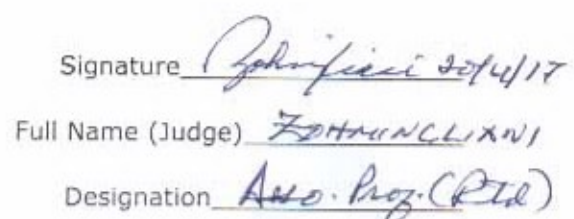 Signature 20/4/17
Full Name (Judge) ZOHMINGLIANI
Designation Asso. Prof. (Rtd)